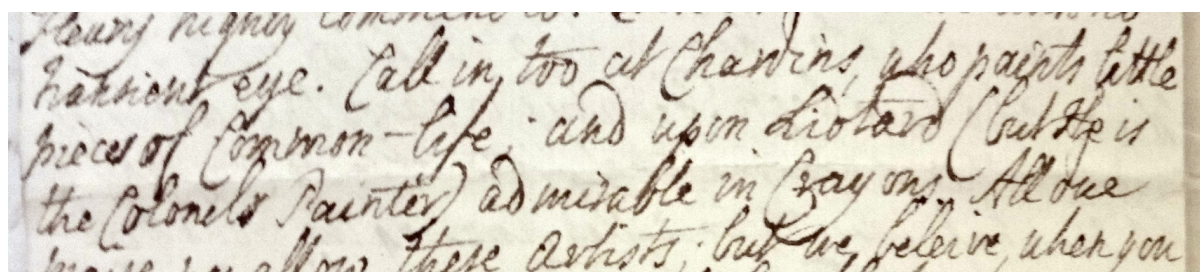 highly
transient eye. Call in, too at Chardins, who paints little
pieces of Common-life; and upon Liotard (but He is
the Colonels Painter) admirable in Crayons. All due
allow these Artists; but we beleive, when you